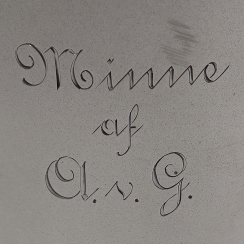 Minne
af
A. v. G.